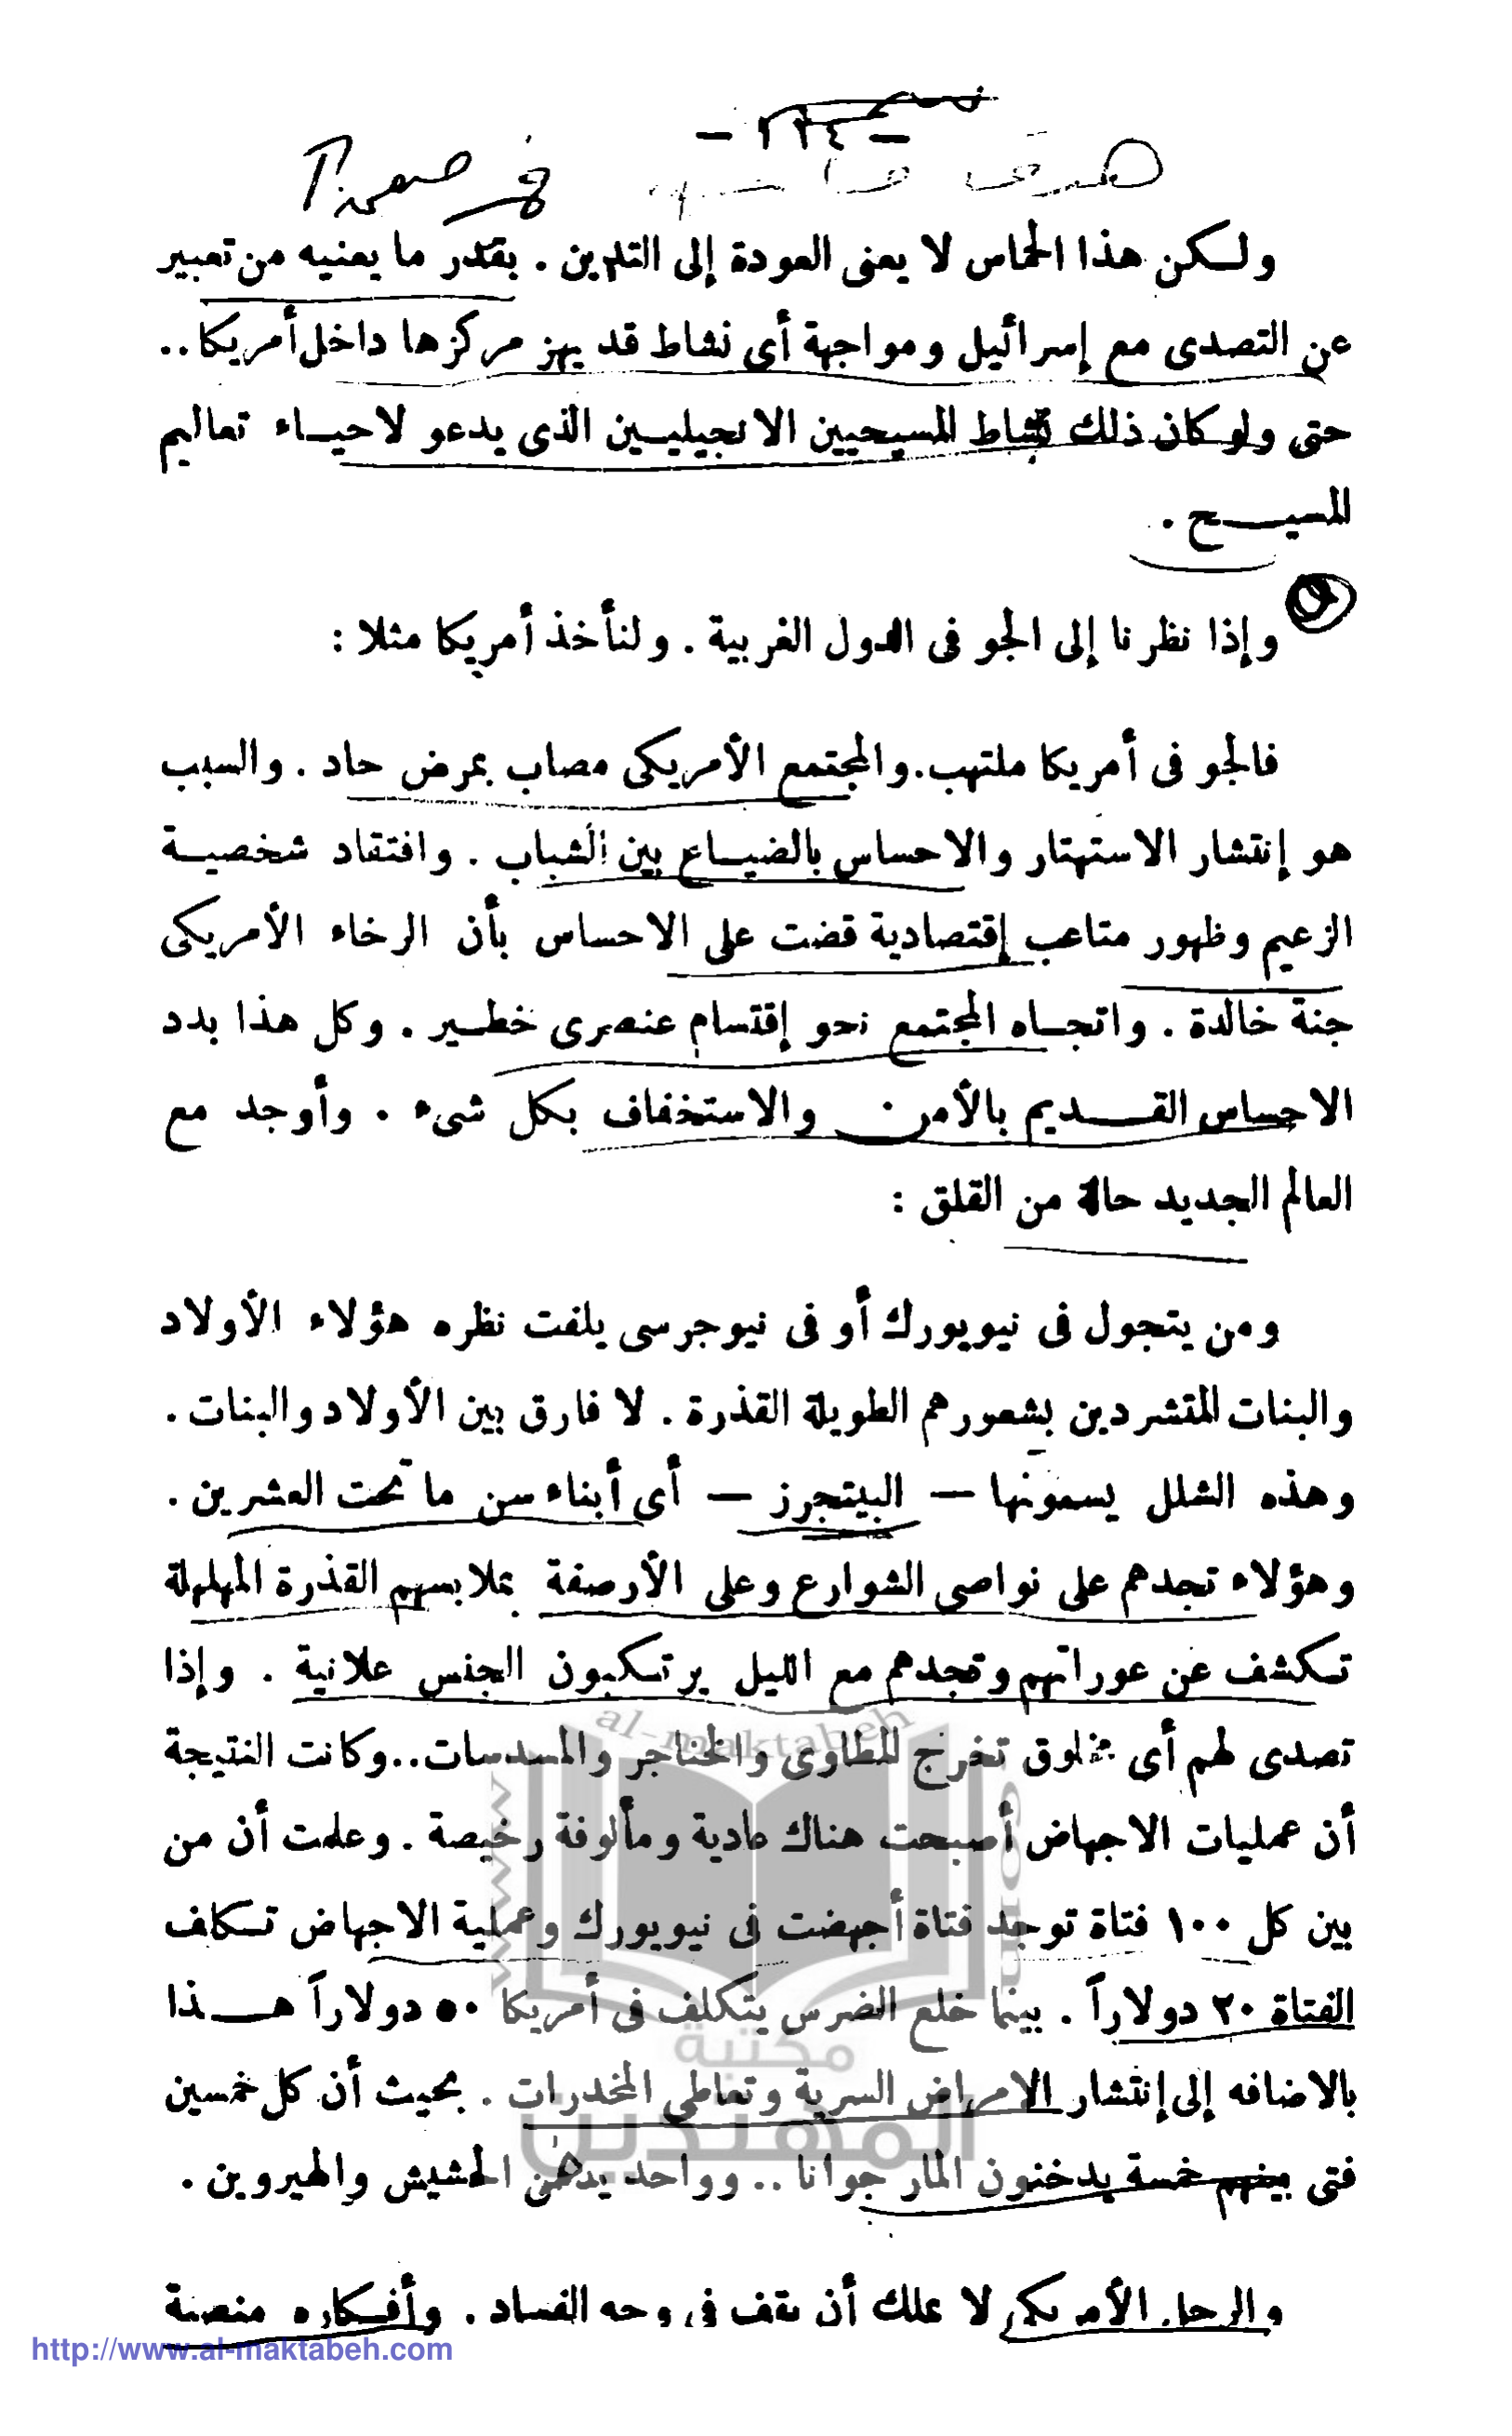 - ٢٢٤ -
ولكن هذا الحماس لا يعنى العودة إلى التدين . بقدر ما يعنيه من تعبير
عن التصدى مع إسرائيل ومواجهة أى نشاط قد يهز مركزها داخل أمريكا ..
حتى ولو كان ذلك نشاط المسيحيين الانجيليين الذى يدعو لاحياء تعاليم
المسيح .
وإذا نظرنا إلى الجو فى الدول الغربية . ولنأخذ أمريكا مثلا :
فالجو فى أمريكا ملتهب . والمجتمع الأمريكى مصاب بمرض حاد . والسبب
هو إنتشار الاستهتار والاحساس بالضياع بين الشباب . وافتقاد شخصية
الزعيم وظهور متاعب إقتصادية قضت على الاحساس بأن الرخاء الأمريكى
جنة خالدة . واتجاه المجتمع نحو إقتسام عنصرى خطير . وكل هذا بدد
الاحساس القديم بالأمن . والاستخفاف بكل شىء . وأوجد مع
العالم الجديد حالة من القلق :
ومن يتجول فى نيويورك أو فى نيوجرسى يلفت نظره هؤلاء الأولاد
والبنات المتشردين بشعورهم الطويلة القذرة . لا فارق بين الأولاد والبنات .
وهذه الشلل يسمونها — البيتجرز — أى أبناء سن ما تحت العشرين .
وهؤلاء تجدهم على نواصى الشوارع وعلى الأرصفة بملابسهم القذرة المهلهلة
تكشف عن عوراتهم وتجدهم مع الليل يرتكبون الجنس علانية . وإذا
تصدى لهم أى مخلوق تخرج المطاوى والخناجر والمسدسات .. وكانت النتيجة
أن عمليات الاجهاض أصبحت هناك عادية ومألوفة رخيصة . وعلمت أن من
بين كل ١٠٠ فتاة توجد فتاة أجهضت فى نيويورك وعملية الاجهاض تكلف
الفتاة ٢٠ دولاراً . بينما خلع الضرس يتكلف فى أمريكا ٥٠ دولاراً هذا
بالاضافه إلى إنتشار الامراض السرية وتعاطى المخدرات . بحيث أن كل خمسين
فتى بينهم خمسة يدخنون المار جوانا .. وواحد يدهن الحشيش والهيروين .
والرجل الأمريكى لا يملك أن يقف فى وجه الفساد . وأفكاره منصبة
http://www.al-maktabeh.com
al-maktabeh
www
.com
مكتبة
المهتدين